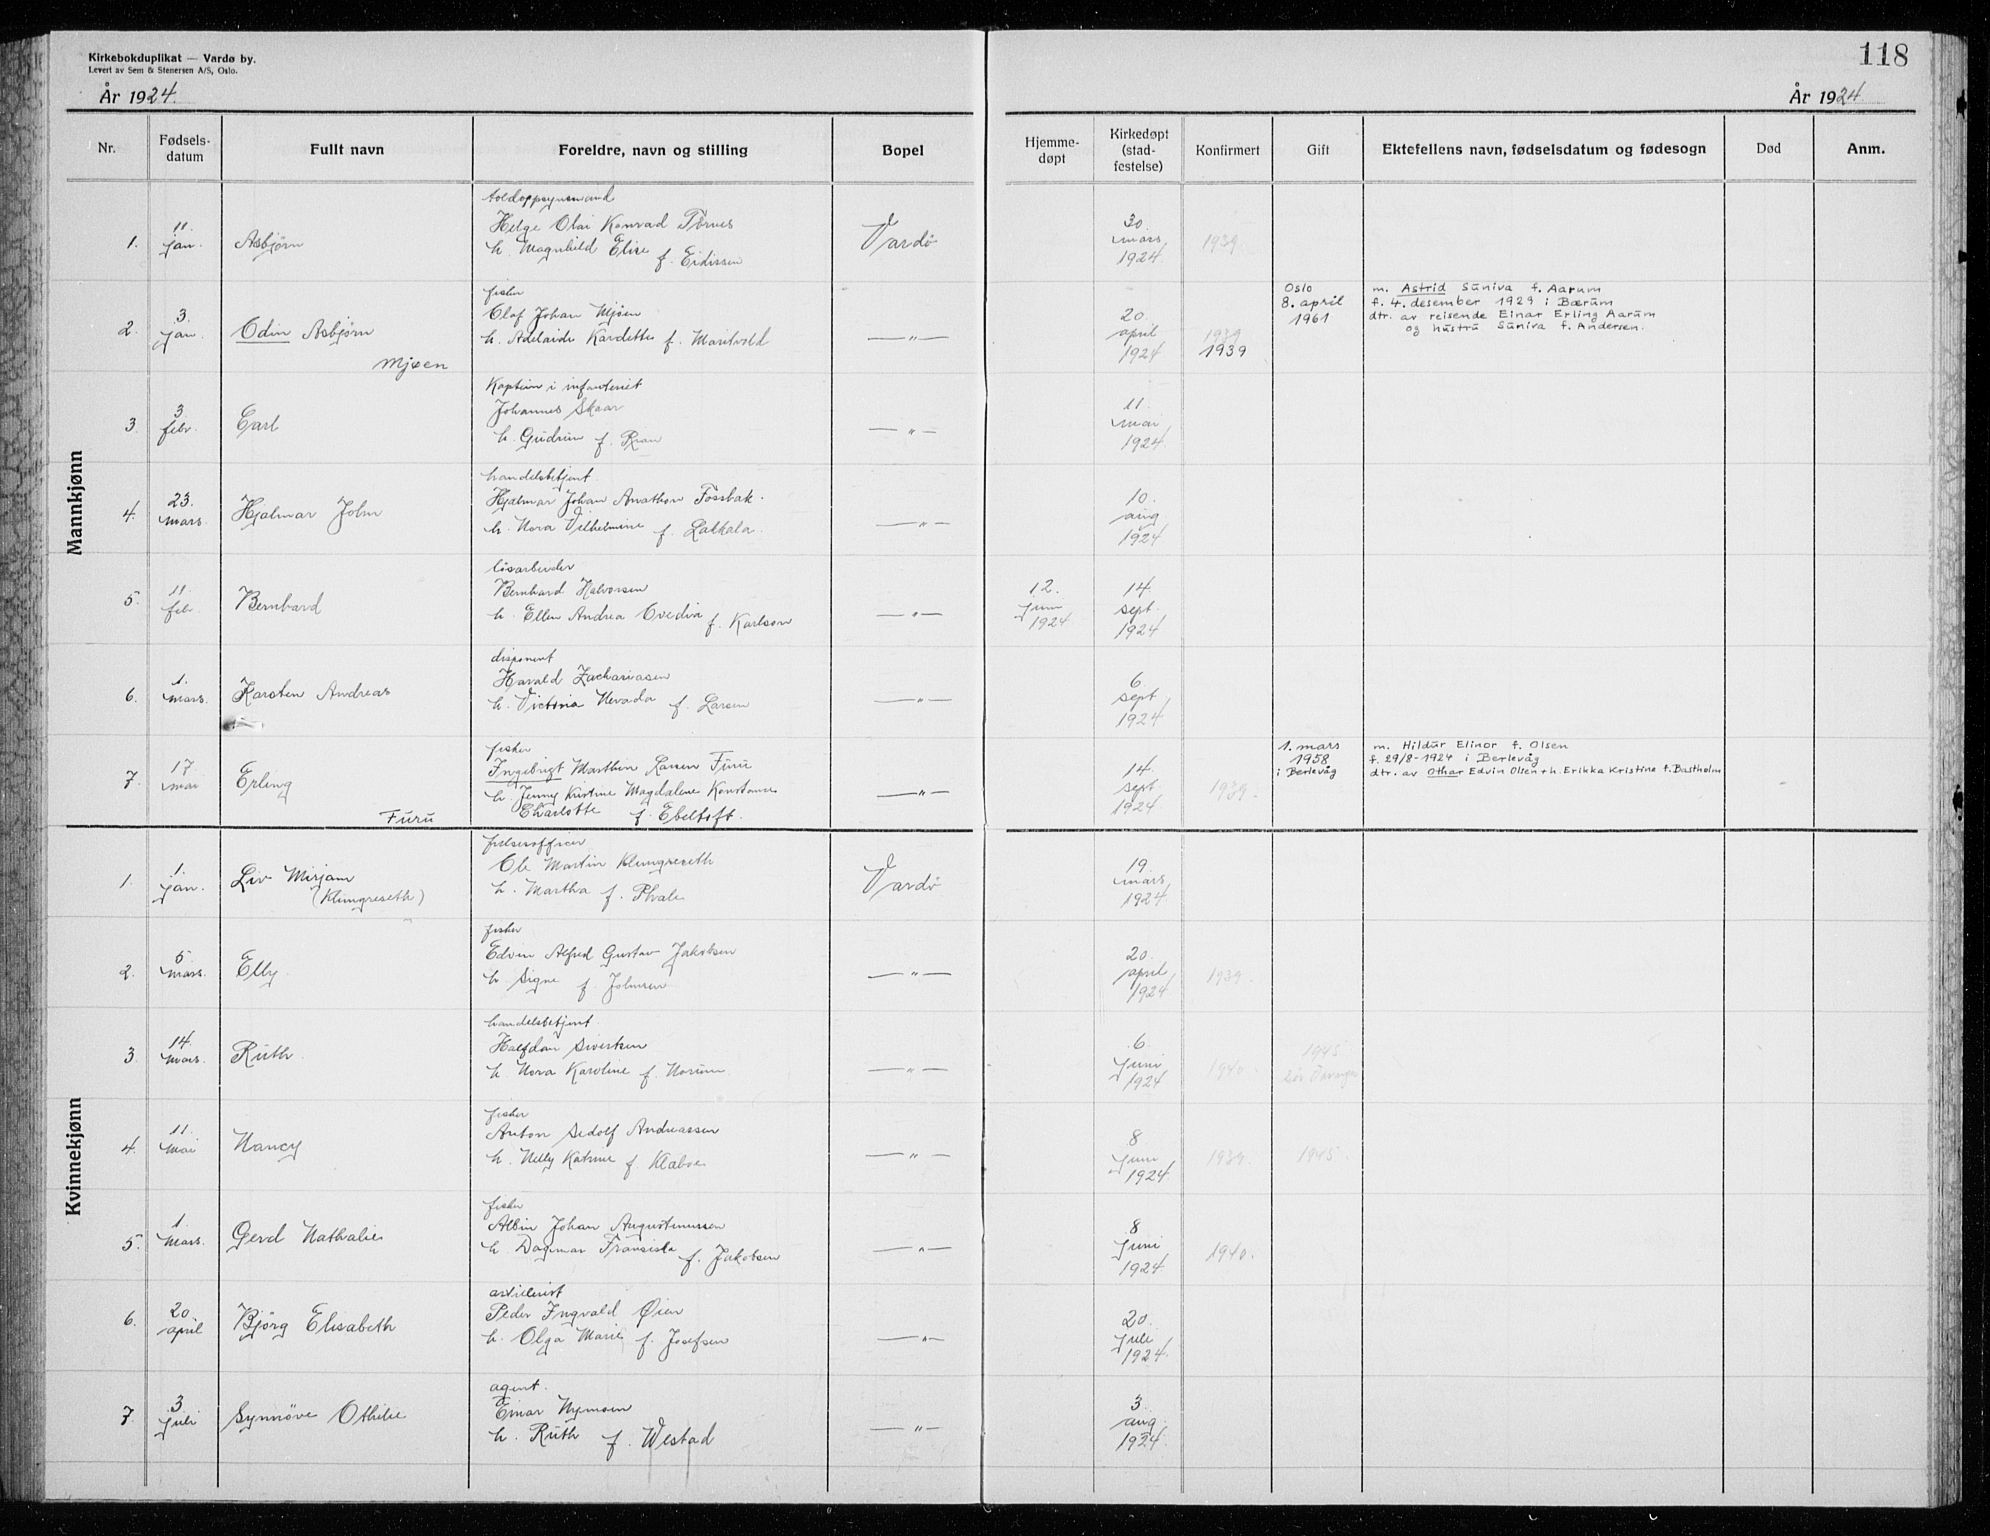 Kirkebokduplikat — Vardø by.
Levert av Sem & Stenersen A/S, Oslo.
118
År 1924.
År 1924
Nr.
Fødsels-
datum
Fullt navn
Foreldre, navn og stilling
Bopel
Hjemme-
døpt
Kirkedøpt
(stad-
festelse)
Konfirmert
Gift
Ektefellens navn, fødselsdatum og fødesogn
Død
Anm.
Mannkjønn
1.
11.
jan.
Asbjørn
toldoppsynsmand
Helge Olai Konrad Tornes
h. Magnhild Elise f. Eidissen
Vardö
30.
mars
1924.
1939.
2.
3.
jan.
Odin Asbjörn
Mjøen
fisker
Olaf Johan Mjöen
h. Adelaide Kardette f. Maritvold
— " —
20.
april
1924
1939
1939
Oslo
8. april
1961
m. Astrid Suniva f. Aarum
f. 4. desember 1929 i Bærum
dtr. av reisende Einar Erling Aarum
og hustru Suniva f. Andersen.
3.
3
febr.
Carl
Kaptein i infanteriet
Johannes Skaar
h. Gudrun f. Rian
— " —
11.
mai
1924.
4.
23.
mars.
Hjalmar John
handelsbetjent.
Hjalmar Johan Anathon Fossbak.
h. Nora Vilhelmine f. Lakkala.
— " —
10.
aug
1924.
5.
11
febr.
Bernhard
lösarbeider
Bernhard Halvorsen
h. Ellen Andrea Ovedia f. Karlson
— " —
12.
Juni
1924
14.
sept.
1924
6.
1.
mars.
Karsten Andreas
disponent
Harald Zachariasen
h. Victoria Nevada f. Larsen
— " —
6.
sept
1924
7.
17
mai
Erling
Furu
fisker
Ingebrigt Marthin Larsen Furu
h. Jenny Kristine Magdalene Konstance
Charlotte f. Ebeltoft.
— " —
14.
sept
1924.
1939.
1. mars
1958
i Berlevåg
m. Hildur Elinor f. Olsen
f. 29/8-1924 i Berlevåg
dtr. av Othar Edvin Olsen + h. Erikka Kristine f. Bastholm
Kvinnekjønn
1.
1.
jan.
Liv Mirjam
(Klungreseth)
frelsesofficer
Ole Martin Klungreseth
h. Martha f. Phale
Vardö
19.
mars
1924
2.
5
mars.
Elly.
fisker
Edvin Alfred Gustav Jakobsen
h. Signe f. Johnsen
— " —
20.
april
1924
1939.
3.
14.
mars.
Ruth.
handelsbetjent.
Halfdan Sivertsen
h. Nora Karoline f. Norum.
— " —
6.
Juni
1924
1940.
1945
4.
11.
mai
Nancy
fisker
Anton Sedolf Andreassen
h. Nelly Katrine f. Klæboe
— " —
8
Juni
1924.
1939.
1945.
5.
1
mars.
Gerd Nathalie
fisker
Albin Johan Augustinussen
h. Dagmar Fransiska f. Jakobsen
— " —
8
Juni
1924.
1940.
6.
20
april
Björg Elisabeth
artilerist
Peder Ingvald Øien
h. Olga Marie f. Josefsen
— " —
20.
Juli
1924.
7.
3
Juli
Synnöve Othilie
agent.
Einar Nymoen
h. Ruth f. Westad
— " —
3.
aug.
1924.